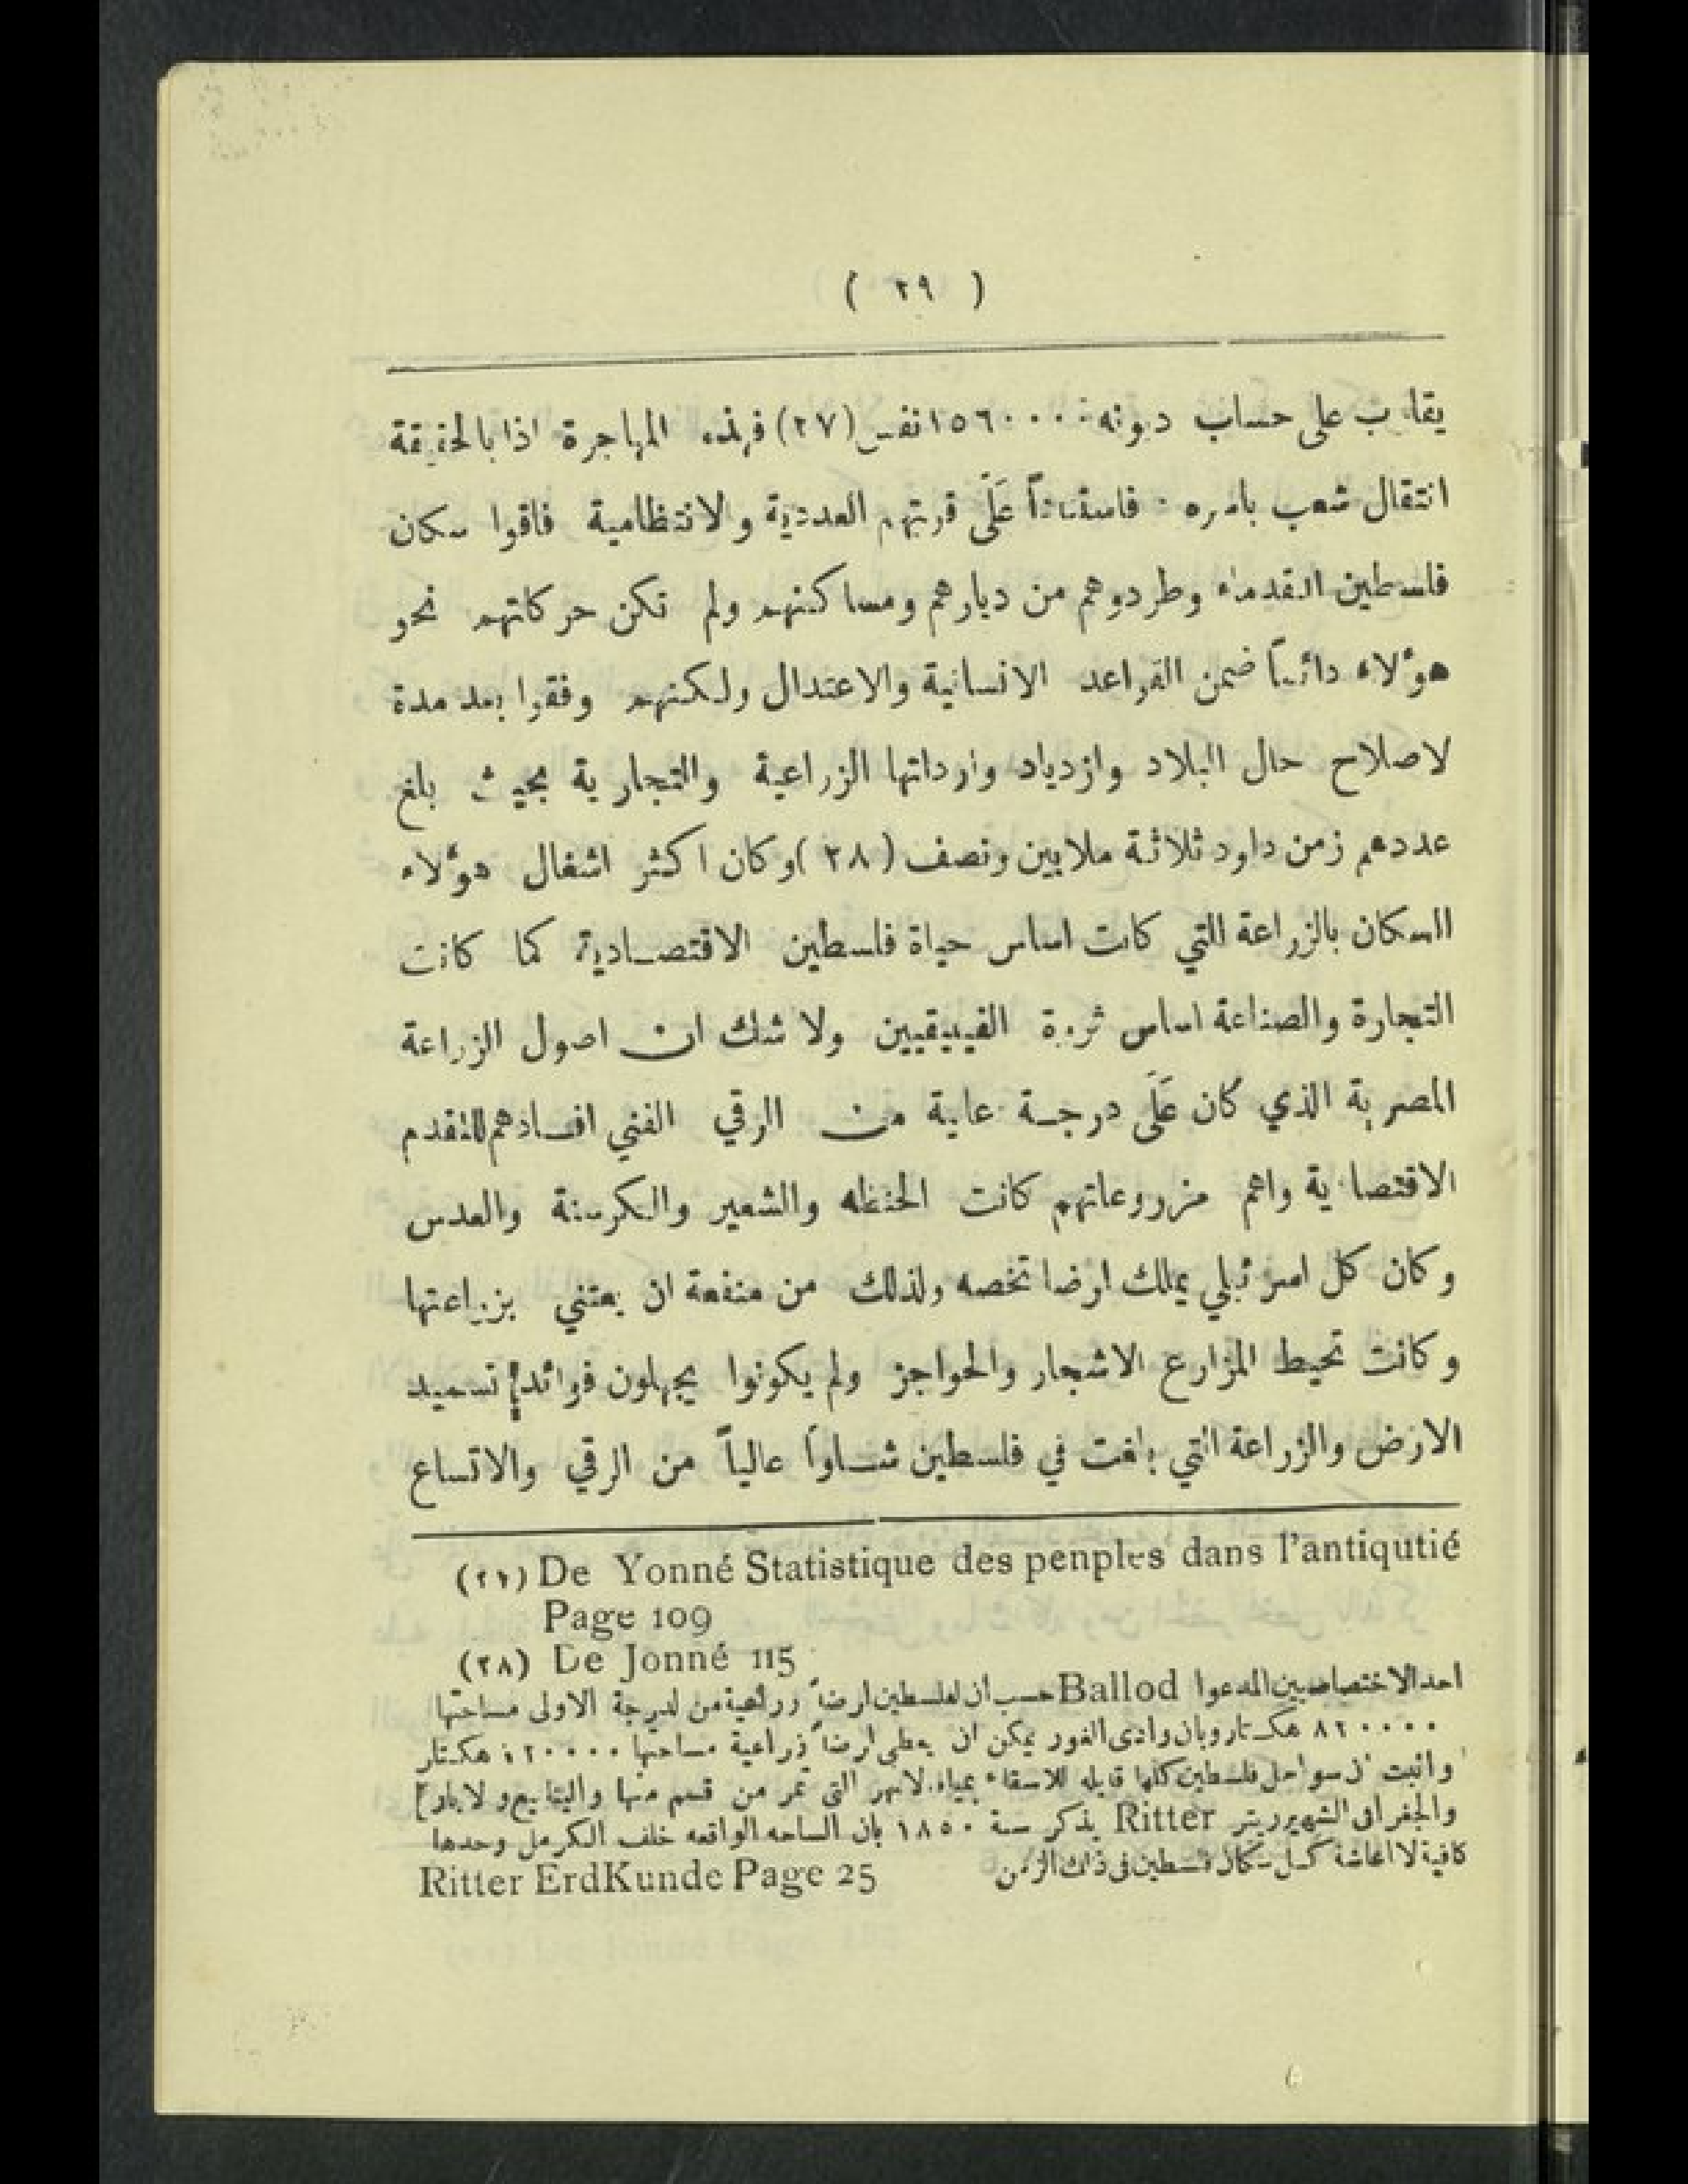 ( ٢٩ )
يقارب على حساب دوثه ١٥٦٠٠٠٠ نفس (٢٧) فهذه المهاجرة اذا بالحقيقة
انتقال شعب باسره : فاستناداً عَلَى قوتهم العددية والانتظامية فاقوا سكان
فلسطين القدماء وطردوهم من ديارهم ومساكنهم ولم تكن حركاتهم نحو
هوُلاء دائماً ضمن القواعد الانسانية والاعتدال ولكنهم وفقوا بعد مدة
لاصلاح حال البلاد وازدياد وارداتها الزراعية والتجارية بحيث بلغ
عددهم زمن داود ثلاثة ملايين ونصف (٢٨) وكان اكثر اشغال هوُلاء
السكان بالزراعة التي كانت اساس حياة فلسطين الاقتصادية كما كانت
التجارة والصناعة اساس ثروة الفينيقيين ولا شك ان اصول الزراعة
المصرية الذي كان عَلَى درجة عاية من الرقي الفني افادهم للتقدم
الاقتصادية واهم مزروعاتهم كانت الحنطه والشعير والكرسنة والعدس
وكان كل اسرئيلي يملك ارضا تخصه ولذلك من منفعة ان يعتني بزراعتها
وكانت تحيط المزارع الاشجار والحواجز ولم يكونوا يجهلون فوائد تسميد
الارض والزراعة التي بلغت في فلسطين شاواً عالياً من الرقي والاتساع
(٢٧) De Yonné Statistique des penples dans l'antiqutié
Page 109
(٢٨) De Jonné 115
احد الاختصاصيين المدعوا Ballod حسب ان لفلسطين ارضاً زراعية من لدرجة الاولى مساحتها
٨٢٠٠٠٠ هكتار وبان وادى الغور يمكن ان يعطي ارضاً زراعية مساحتها ٤٢٠٠٠٠ هكتار
واثبت ان سواحل فلسطين كلها قابله للاسقاء بمياه لانهر التي تمر من قسم منها والينابيع ولابار]
والجغرافى الشهير ريتر Ritter يذكر سنة ١٨٥٠ بان الساحه الواقعه خلف الكرمل وحدها
كافية لا اعاشة كل سكان فلسطين فى ذلك الزمن Ritter ErdKunde Page 25